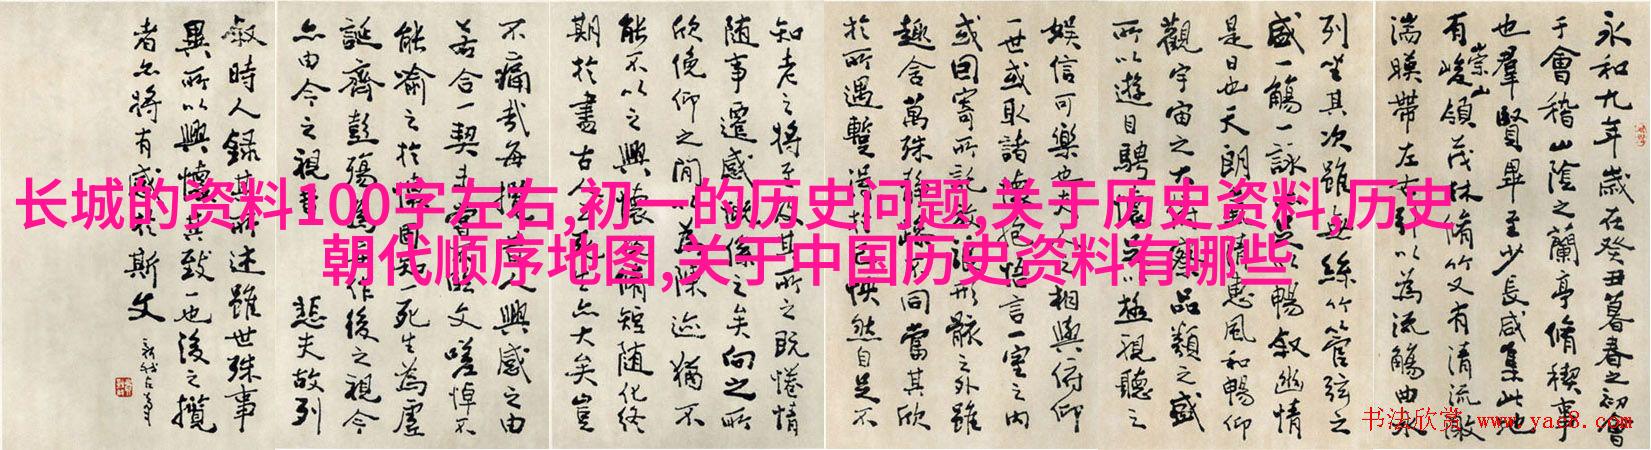 长城的资料100字左右,初一的历史问题,关于历史资料,历史
朝代顺序地图,关于中国历史资料有哪些
永和九年歲在癸丑暮春之初會
于會稽山陰之蘭亭脩稧事
也羣賢畢至少長咸集此地
有崇山峻領茂林脩竹又有清流激
湍暎帶左右引以為流觴曲水
列坐其次雖無絲竹管弦之
盛一觴一詠亦足以暢叙幽情
是日也天朗氣清惠風和暢仰
觀宇宙之大俯察品類之盛
所以遊目騁懷足以極視聽之
娛信可樂也夫人之相與俯仰
一世或取諸懷抱悟言一室之內
或因寄所託放浪形骸之外雖
趣舍萬殊静躁不同當其欣
於所遇暫得於己怏然自足不
知老之將至及其所之既惓情
隨事遷感慨係之矣向之所
欣俛仰之間以為陳迹猶不
能不以之興懷況脩短隨化終
期於盡古人云死生亦大矣豈
不痛哉每攬昔人興感之由
若合一契未嘗不臨文嗟悼不
能喻之於懷固知一死生為虛
誕齊彭殤為妄作後之視今
亦由今之視昔悲夫故列
叙時人錄其所述雖世殊事
異所以興懷其致一也後之攬
者亦將有感於斯文
书法欣赏 www.yac8.com